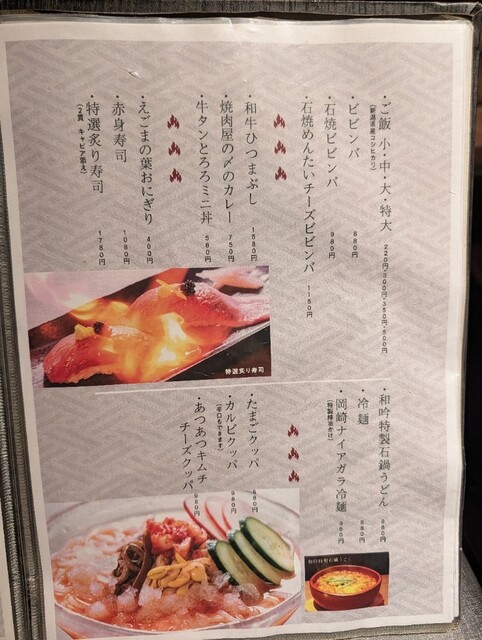 ・ご飯 小・中・大・特大 220円・300円・350円・500円
(新潟県産コシヒカリ)
・ビビンバ 880円
・石焼ビビンバ 980円
・石焼めんたいチーズビビンバ 1150円
・和牛ひつまぶし 1580円
・焼肉屋の〆のカレー 750円
・牛タンとろろミニ丼 580円
・えごまの葉おにぎり 400円
・赤身寿司 1080円
・特選炙り寿司 1780円
(2貫 キャビア添え)
特選炙り寿司
・和吟特製石鍋うどん 980円
・冷麺 880円
・岡崎ナイアガラ冷麺 980円
・たまごクッパ
・カルビクッパ 980円
(辛口もできます)
・あつあつキムチ
チーズクッパ 980円
和吟特製石鍋うどん